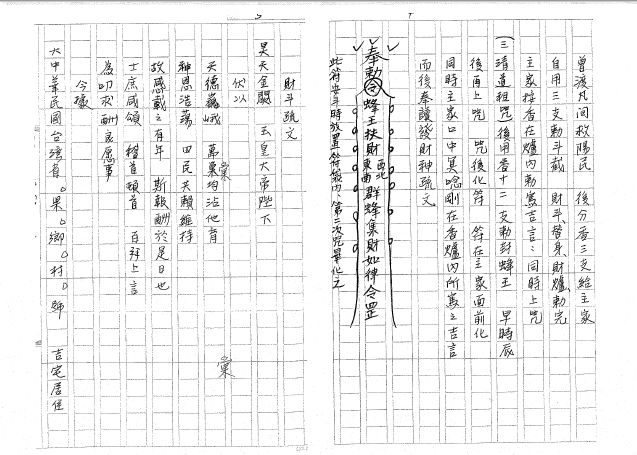 曾渡凡間救陽民　後分香三支給主家
自用三支勅斗截　財斗、替身、財爐勅完
主家接香在爐內勅寫吉言：同時上咒
(三)請道祖咒後用香十二支勅封蜂王　早時辰
後再上咒　咒後化符　符在主家面前化
同時主家口中莫唸剛在香爐內所寫之吉言
而後奉讀發財神疏文
奉勅令蜂王扶財西北東南群蜂集財如律令罡
此符安斗時放置於符飯內、第二次咒畢化之
財斗疏文
昊天金闕　玉皇大帝陛下
伏以
天德巍峨　萬稟均沾化育
稟
神恩浩蕩　四民共賴維持
故感戴之有年　斯報酬於是日也
稟
士庶咸頌　稽首頓首　百拜上言
為叩求酬哀愿事
今據
大中華民國台灣省○果○鄉○村○號　吉宅居住